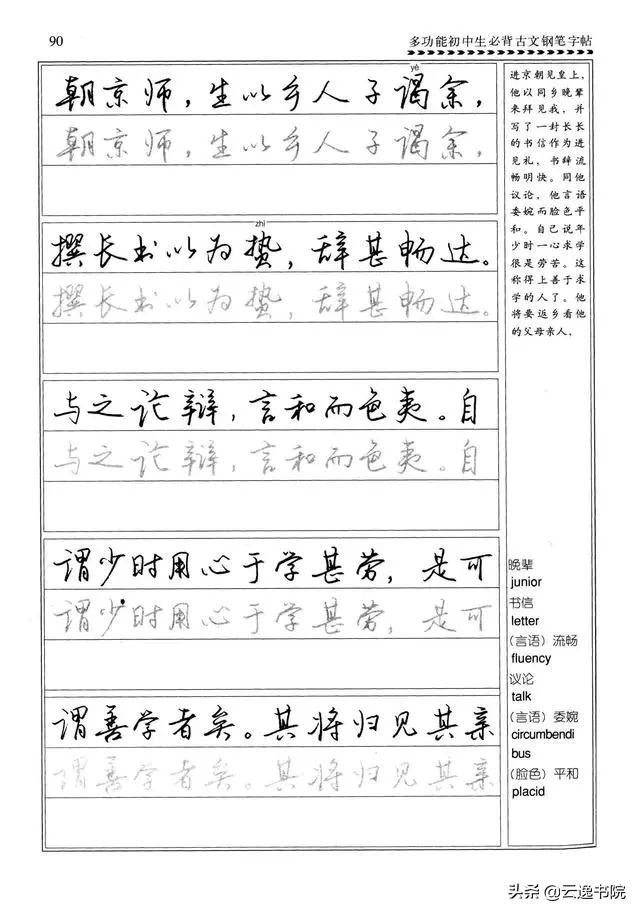 90
多功能初中生必背古文钢笔字帖
yè
朝京师，生以乡人子谒余，
朝京师，生以乡人子谒余，
zhì
撰长书以为贽，辞甚畅达。
撰长书以为贽，辞甚畅达。
与之论辩，言和而色夷。自
与之论辩，言和而色夷。自
谓少时用心于学甚劳，是可
谓少时用心于学甚劳，是可
谓善学者矣。其将归见其亲
谓善学者矣。其将归见其亲
进京朝见皇上，
他以同乡晚辈
来拜见我，并
写了一封长长
的书信作为进
见礼，书辞流
畅明快。同他
议论，他言语
委婉而脸色平
和。自己说年
少时一心求学
很是劳苦。这
称得上善于求
学的人了。他
将要返乡看他
的父母亲人，
晚辈
junior
书信
letter
（言语）流畅
fluency
议论
talk
（言语）委婉
circumbendi
bus
（脸色）平和
placid
头条@云逸书院